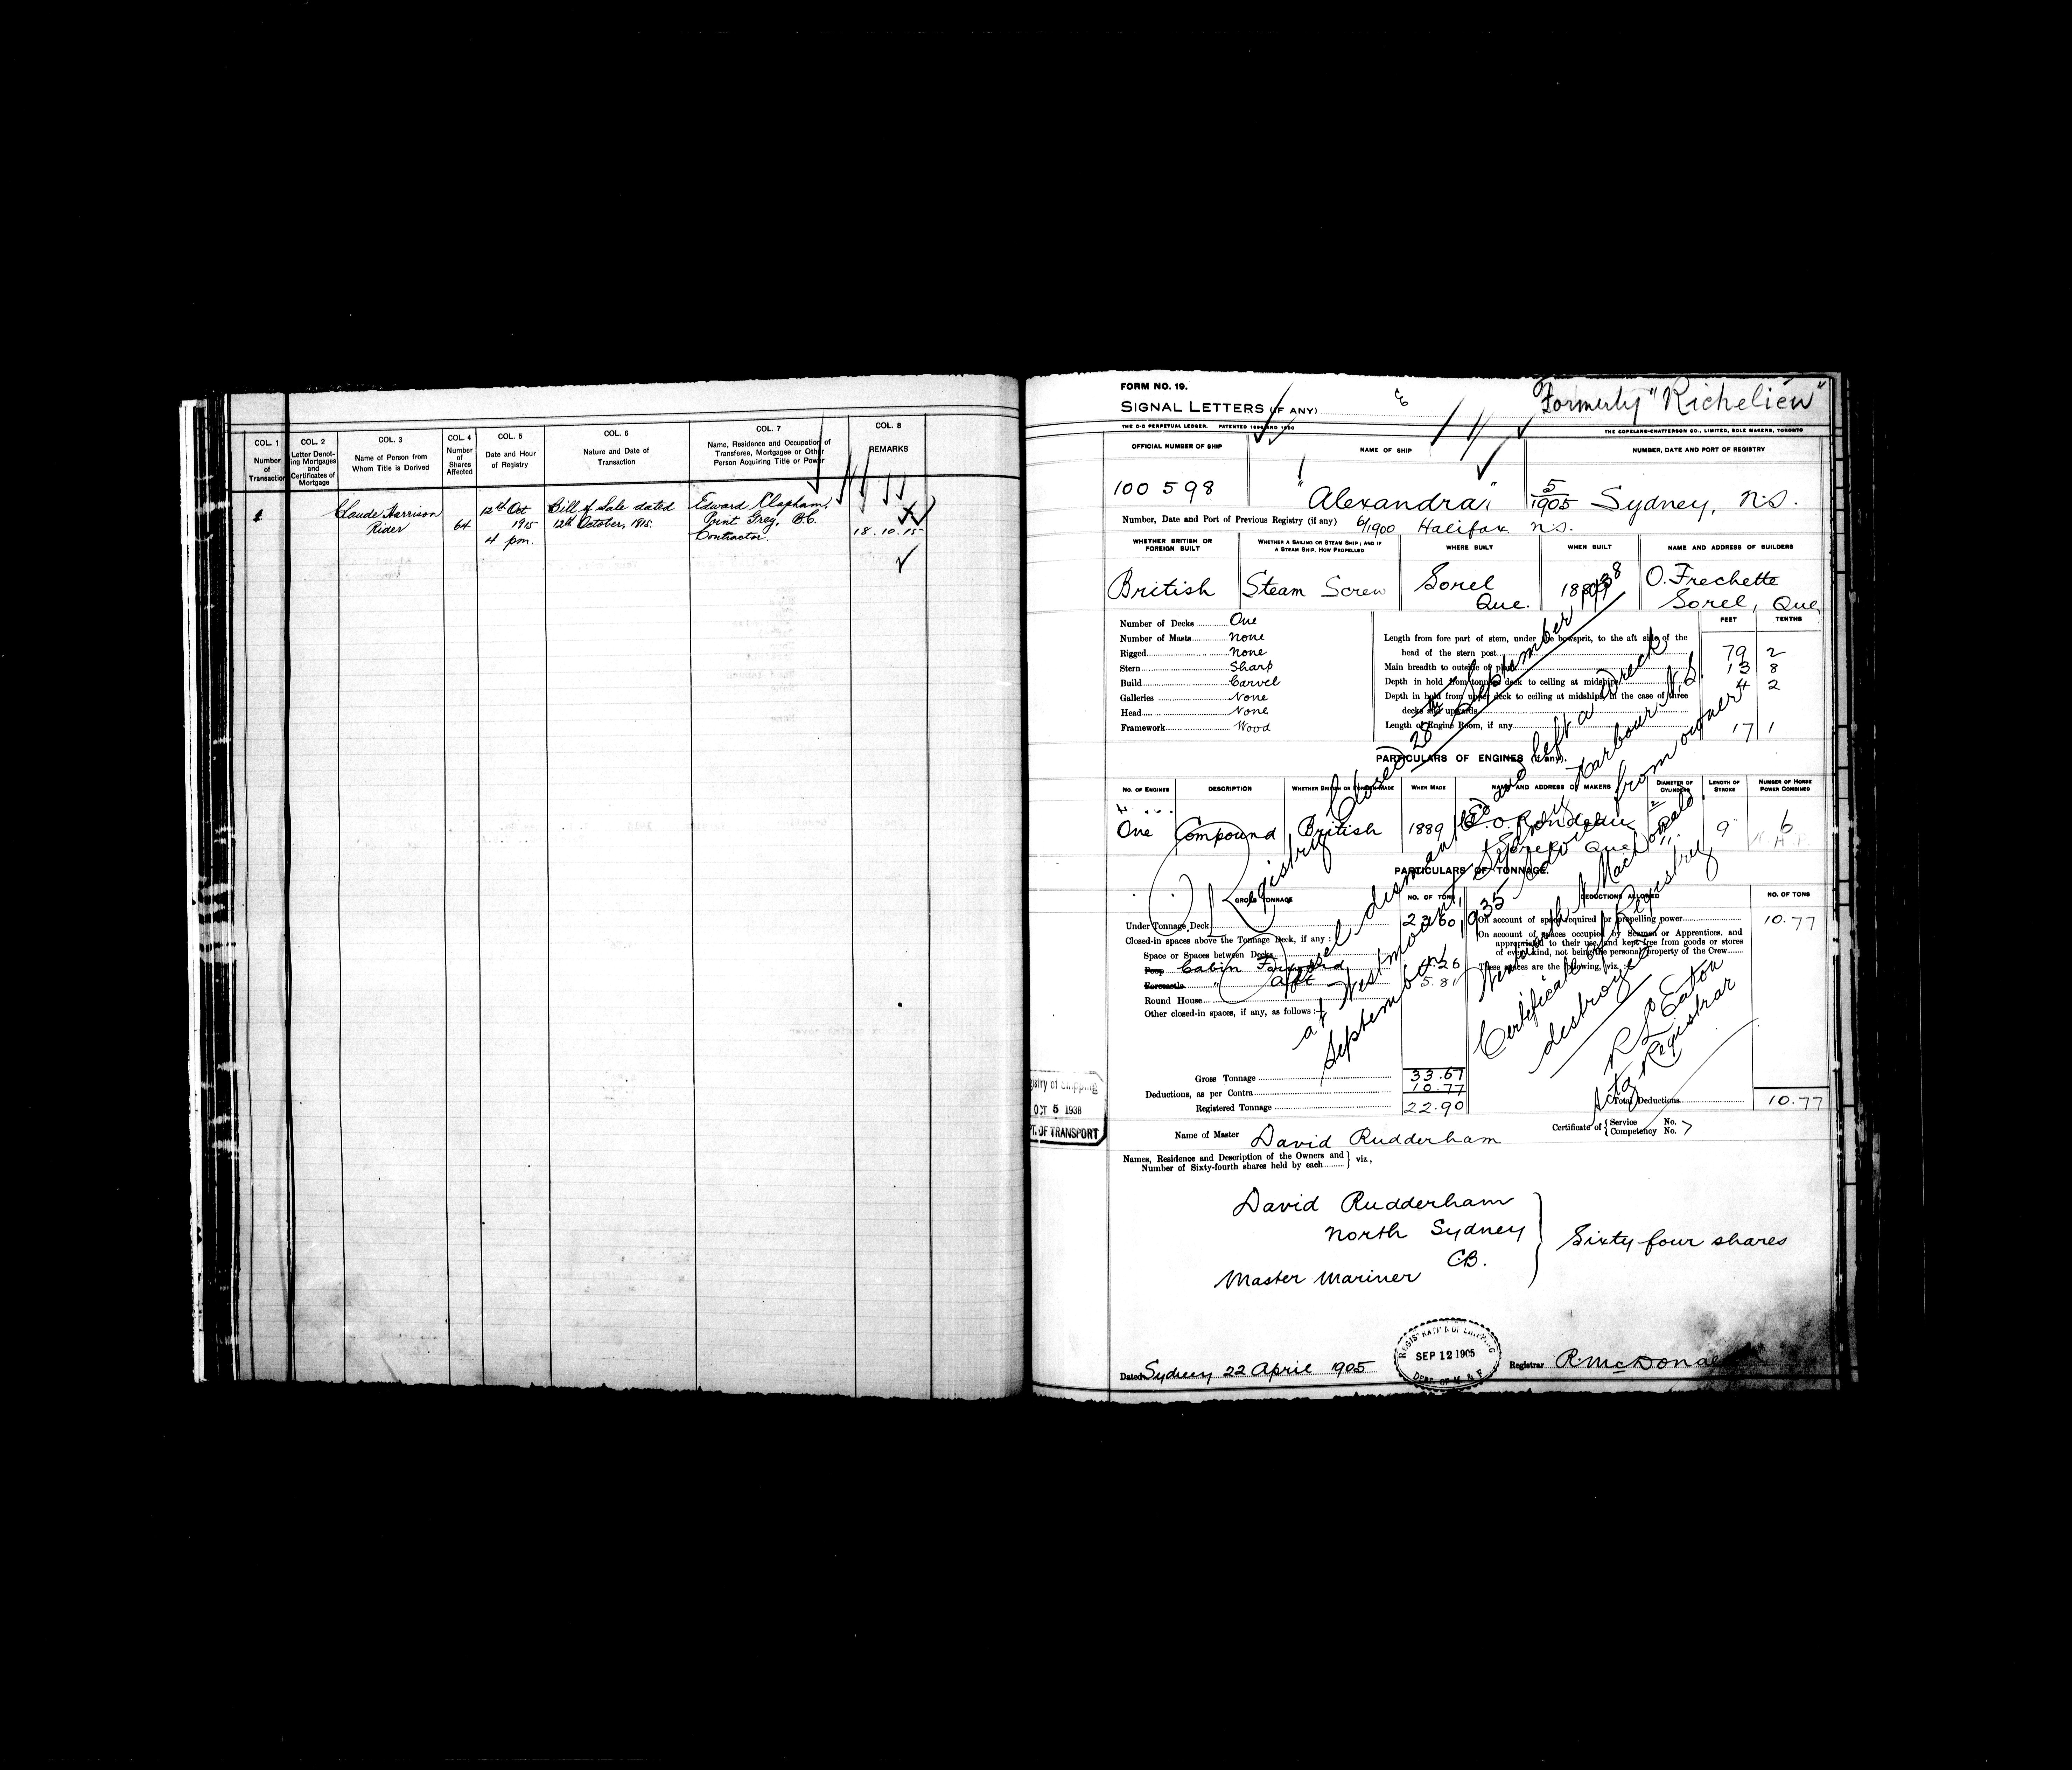 COL. 1
Number
of
Transaction
COL. 2
Letter Denot-
ing Mortgages
and
Certificates of
Mortgage
COL. 3
Name of Person from
Whom Title is Derived
COL. 4
Number
of
Shares
Affected
COL. 5
Date and Hour
of Registry
COL. 6
Nature and Date of
Transaction
COL. 7
Name, Residence and Occupation of
Transferee, Mortgagee or Other
Person Acquiring Title or Power
COL. 8
REMARKS
1
Claude Harrison
Rider
64
12th Oct
1915
4 pm.
Bill of Sale dated
12th October, 1915.
Edward Clapham,
Point Grey, B.C.
Contractor.
18.10.15
FORM NO. 19.
SIGNAL LETTERS (IF ANY)
Formerly "Richelieu"
THE C-C PERPETUAL LEDGER. PATENTED 1898 AND 1900
THE COPELAND-CHATTERSON CO., LIMITED, SOLE MAKERS, TORONTO
OFFICIAL NUMBER OF SHIP
NAME OF SHIP
NUMBER, DATE AND PORT OF REGISTRY
100598
"Alexandra"
5/1905 Sydney, N.S.
Number, Date and Port of Previous Registry (if any) 6/1900 Halifax N.S.
WHETHER BRITISH OR
FOREIGN BUILT
WHETHER A SAILING OR STEAM SHIP; AND IF
A STEAM SHIP, HOW PROPELLED
WHERE BUILT
WHEN BUILT
NAME AND ADDRESS OF BUILDERS
British
Steam Screw
Sorel
Que.
O. Frechette
Sorel, Que
Number of Decks One
Number of Masts None
Rigged None
Stern Sharp
Build Carvel
Galleries None
Head None
Framework Wood
FEET TENTHS
Length from fore part of stem, under the bowsprit, to the aft side of the
head of the stern post 79 2
Main breadth to outside of plank 13 8
Depth in hold from tonnage deck to ceiling at midships 4 2
Depth in hold from upper deck to ceiling at midships, in the case of three
decks and upwards
Length of Engine Room, if any 17 1
PARTICULARS OF ENGINES (if any).
No. of Engines
DESCRIPTION
WHETHER BRITISH OR FOREIGN MADE
WHEN MADE
NAME AND ADDRESS OF MAKERS
DIAMETER OF
CYLINDERS
LENGTH OF
STROKE
NUMBER OF HORSE
POWER COMBINED
One
Compound
British
1889
Rondeau
Sorel Que
9"
6
PARTICULARS OF TONNAGE.
GROSS TONNAGE
NO. OF TONS
DEDUCTIONS ALLOWED
NO. OF TONS
Under Tonnage Deck
Closed-in spaces above the Tonnage Deck, if any :
Space or Spaces between Decks
Poop Cabin Forward 4.26
Forecastle " aft 5.81
Round House
Other closed-in spaces, if any, as follows :
On account of space required for propelling power 10.77
On account of spaces occupied by Seamen or Apprentices, and
appropriated to their use, and kept free from goods or stores
of every kind, not being the personal property of the Crew
These spaces are the following, viz.:
Gross Tonnage 33.67
Deductions, as per Contra 10.77
Registered Tonnage 22.90
Total Deductions 10.77
Registry Closed 28th September 1938
Vessel dismantled and left a wreck
at Westmount, Sydney Harbour N.S.
September, 1935. Advice from owner
Certificate of Registry
destroyed
R L Eaton
Actg Registrar
Registry of Shipping
OCT 5 1938
DEPT. OF TRANSPORT
Name of Master David Rudderham
Certificate of { Service No.
Competency No.
Names, Residence and Description of the Owners and
Number of Sixty-fourth shares held by each } viz.,
David Rudderham
North Sydney
C.B.
Master Mariner
Sixty four shares
Dated Sydney 22 April 1905
REGISTRATION OF SHIPPING
SEP 12 1905
DEPT. OF M & F
Registrar R. McDonal